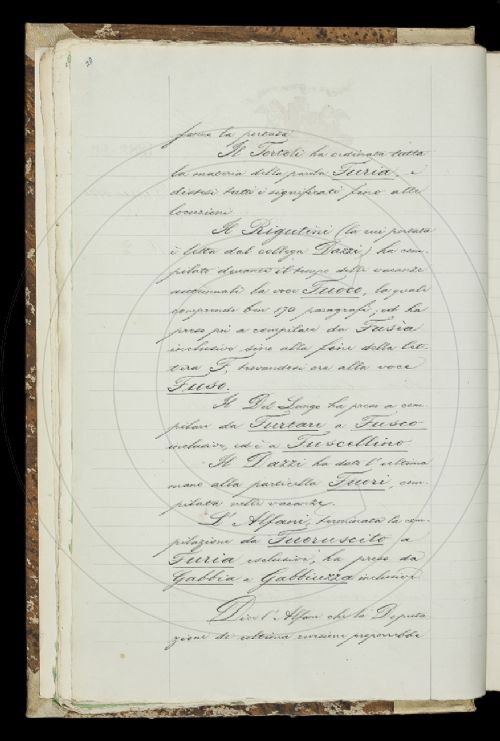 28
la portata
Il Tortoli ha ordinata tutta
la materia della parola Furia, e
distesi tutti i significati fino alle
locuzioni.
Il Rigutini (la cui portata
è letta dal collega Dazzi) ha com-
pilato durante il tempo delle vacanze
autunnali la voce Fuoco, la quale
comprende ben 170 paragrafi; ed ha
preso poi a compilare da Fusia
inclusive sino alla fine della let-
tera F, trovandosi ora alla voce
Fuso.
Il Del Lungo ha preso a com-
pilare da Furtare a Fusco
inclusive, ed è a Fuscellino.
Il Dazzi ha dato l'ultima
mano alla particella Fuori, com-
pilata nelle vacanze.
L'Alfani, terminata la com-
pilazione da Fuoruscito a
Furia exclusive, ha preso da
Gabbia a Gabbiuzza inclusive
Dice l'Alfani che la Deputa
zione di revisione proporrebbe